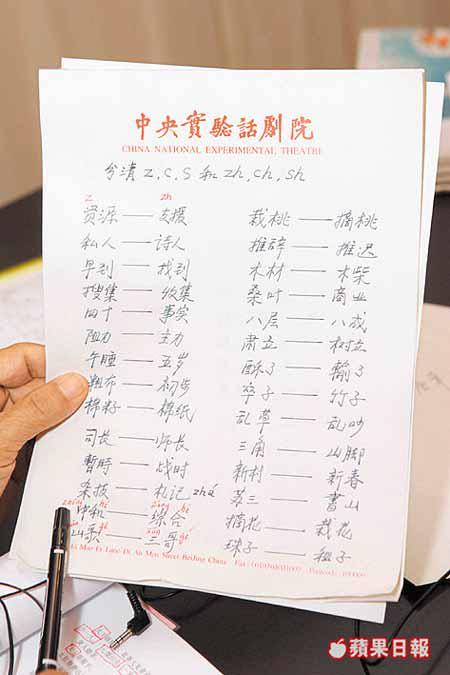 中央實驗話劇院
CHINA NATIONAL EXPERIMENTAL THEATRE
分清 z, c, s 和 zh, ch, sh
z zh
资源——支援
私人——诗人
早到——找到
搜集——收集
四十——事实
阻力——主力
午睡——五岁
粗布——初步
棉籽——棉纸
司长——师长
暫時——战时
杂技——札记 zhá
中和——综合
山歌——三哥
栽桃——摘桃
推辞——推迟
木材——木柴
桑叶——商业
八层——八成
肃立——树立
酥了——输了
卒子——竹子
乱草——乱吵
三角——山脚
新村——新春
苏三——書山
摘花——栽花
珠子——租子
Mao Er Lane Di An Men Street BeiJing China
蘋果日報